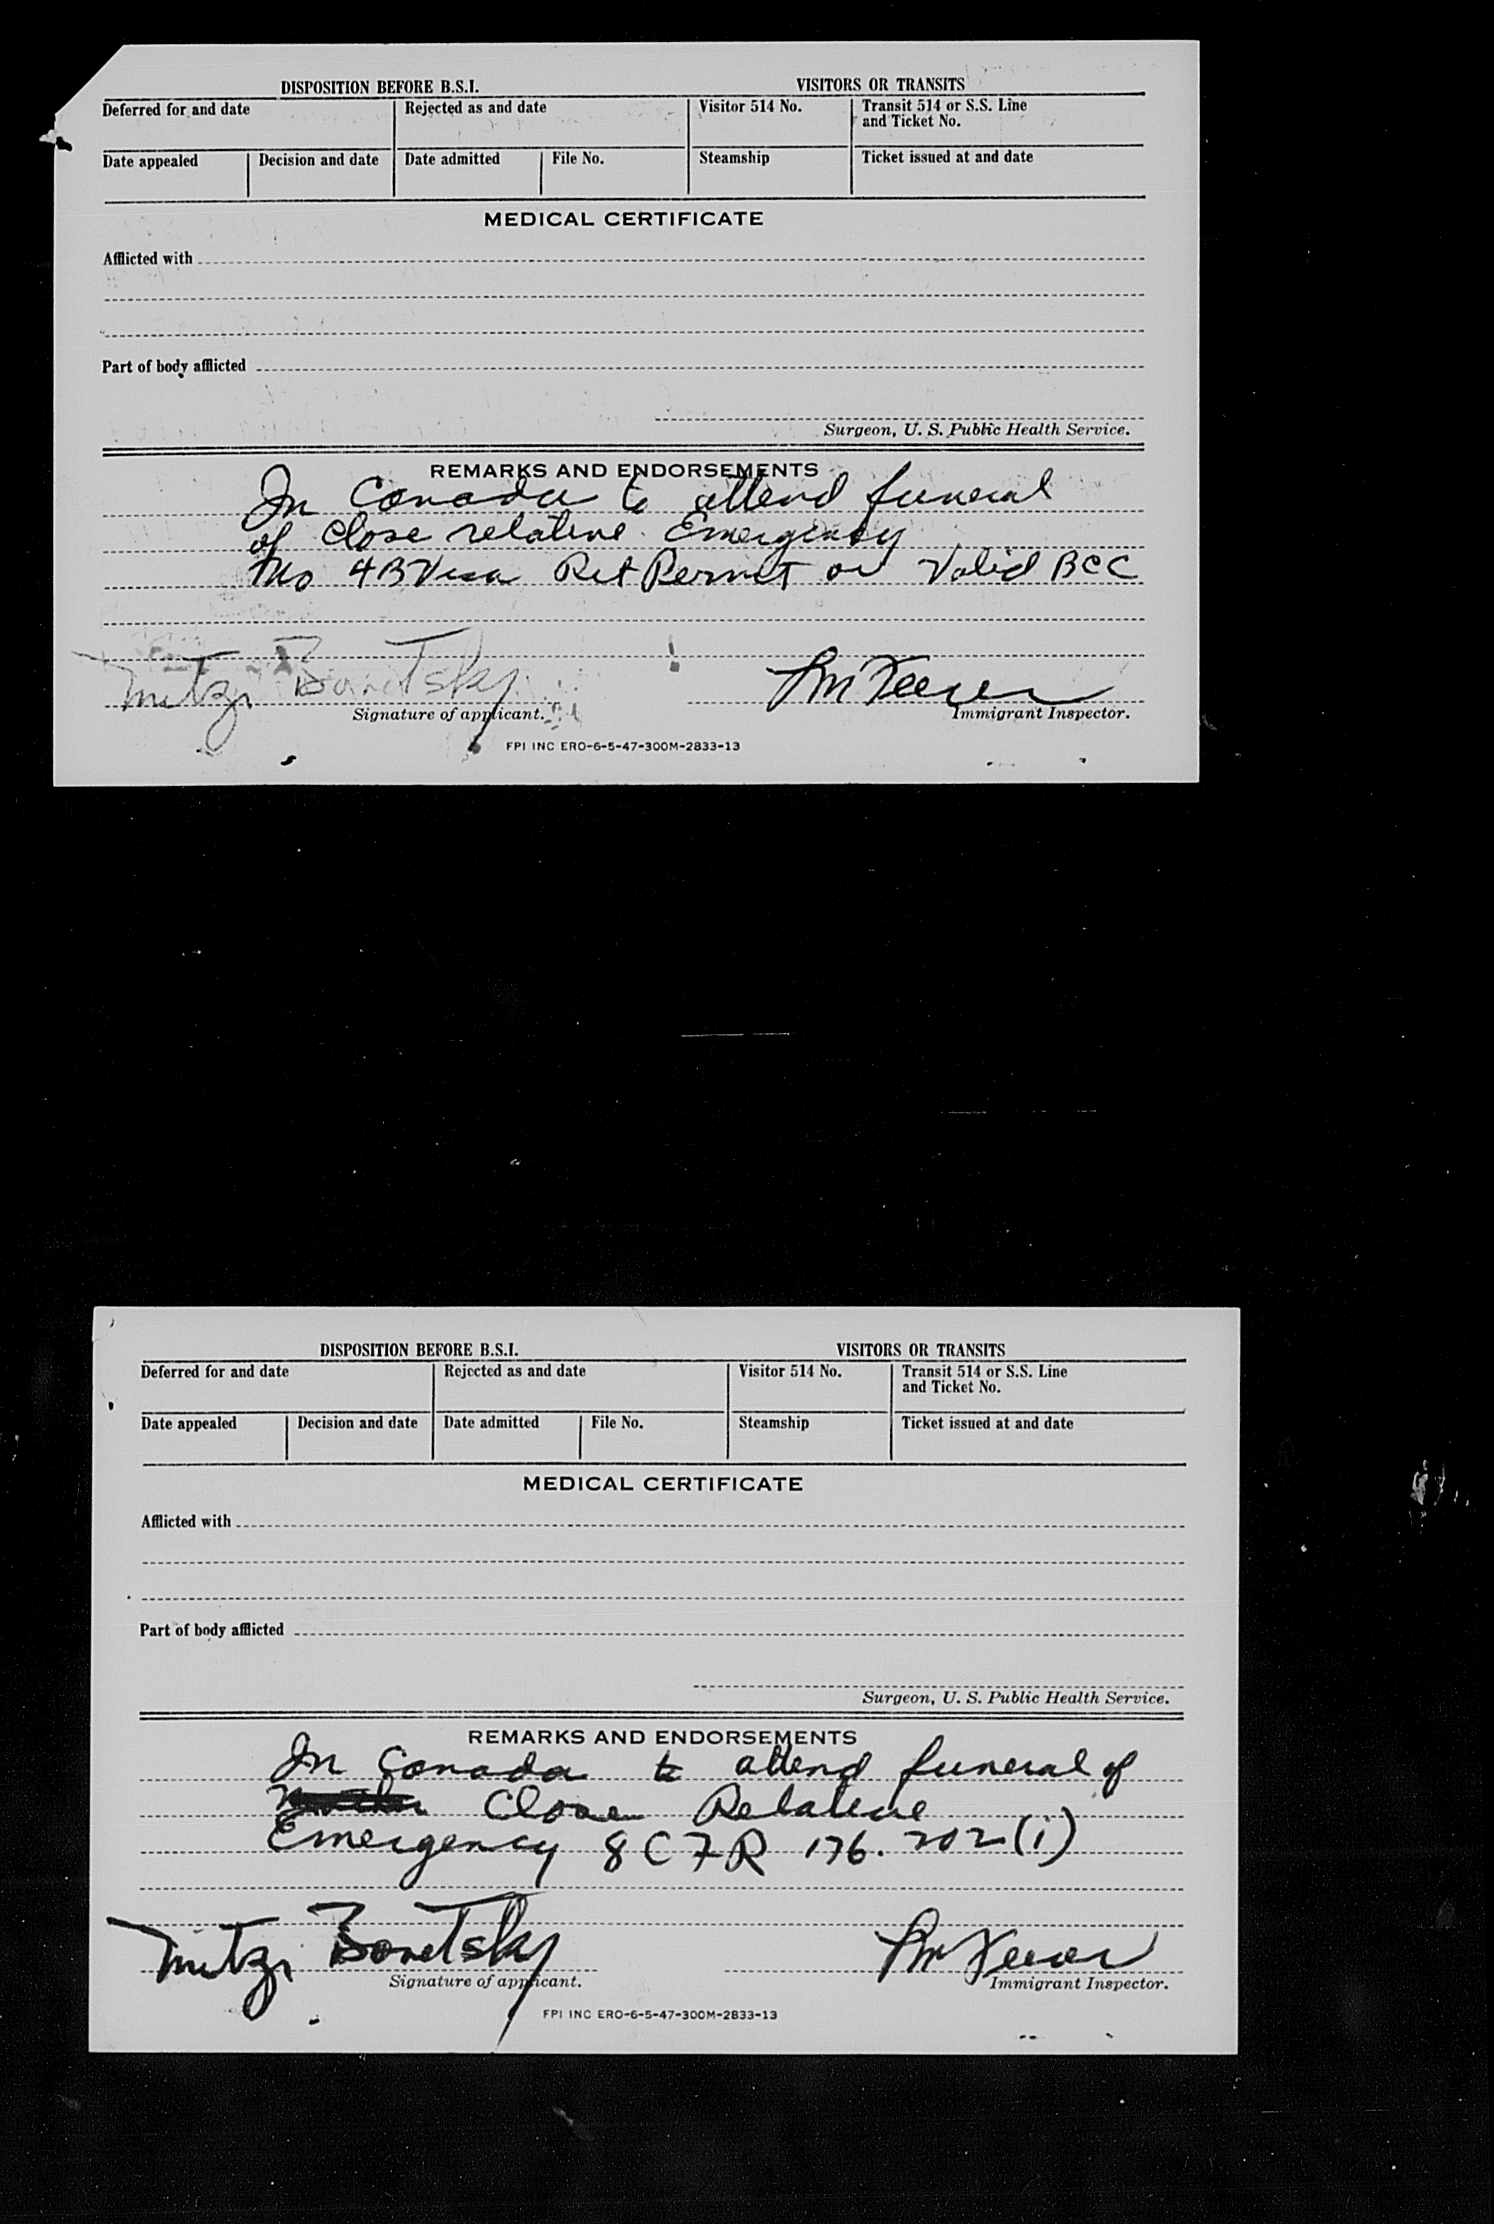 DISPOSITION BEFORE B.S.I. VISITORS OR TRANSITS
Deferred for and date Rejected as and date Visitor 514 No. Transit 514 or S.S. Line
and Ticket No.
Date appealed Decision and date Date admitted File No. Steamship Ticket issued at and date
MEDICAL CERTIFICATE
Afflicted with
Part of body afflicted
Surgeon, U. S. Public Health Service.
REMARKS AND ENDORSEMENTS
In Canada to attend funeral
of close relative. Emergency
No 4B Visa Ret Permit or Valid BCC
Mitzi Bonetsky
Signature of applicant. Immigrant Inspector.
FPI INC ERO-6-5-47-300M-2833-13
DISPOSITION BEFORE B.S.I. VISITORS OR TRANSITS
Deferred for and date Rejected as and date Visitor 514 No. Transit 514 or S.S. Line
and Ticket No.
Date appealed Decision and date Date admitted File No. Steamship Ticket issued at and date
MEDICAL CERTIFICATE
Afflicted with
Part of body afflicted
Surgeon, U. S. Public Health Service.
REMARKS AND ENDORSEMENTS
In Canada to attend funeral of
Close Relative
Emergency 8 CFR 176.202(i)
Mitzi Bonetsky
Signature of applicant. Immigrant Inspector.
FPI INC ERO-6-5-47-300M-2833-13